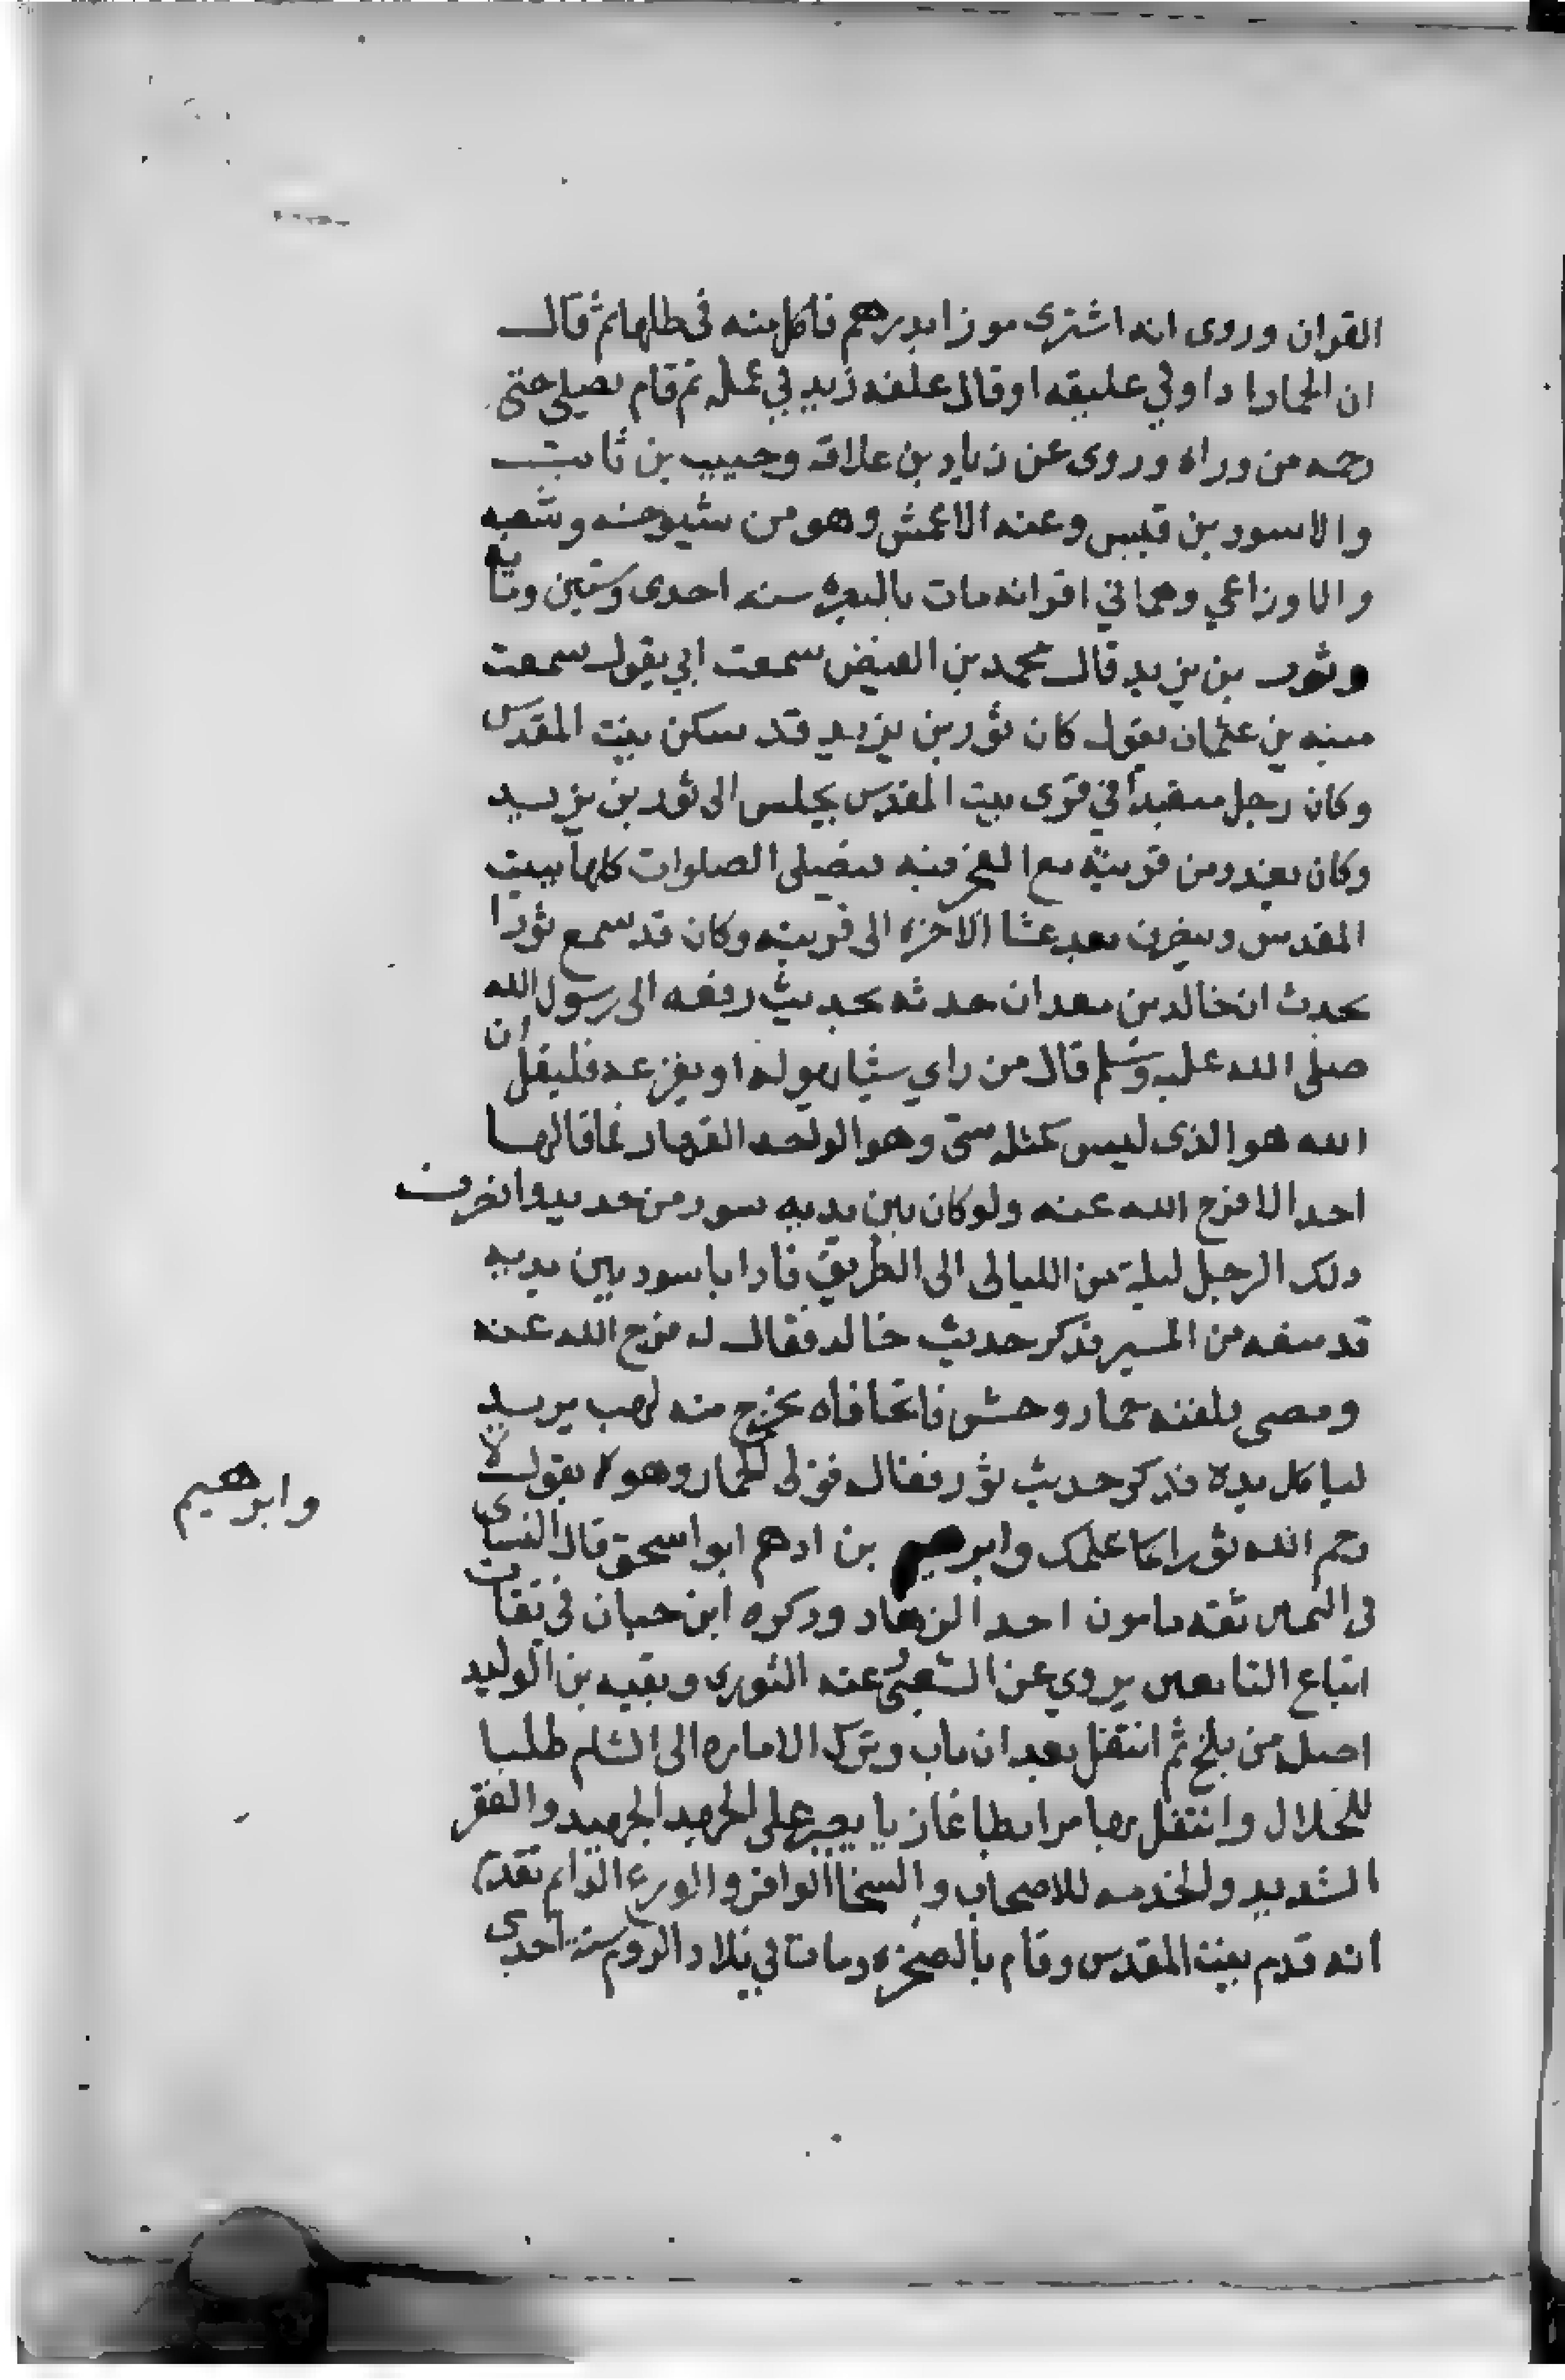 القران وروى انه اشترى موزا بدرهم فاكل منه في ظلها ثم قال
ان الحمار اذا وفي عليقه او قال علفه زيد في عمله ثم قام يصلي حتى
رحمه من وراه وروى عن زياد بن علاقة وحبيب بن ثابت
والاسود بن قيس وعنه الاعمش وهو من شيوخه وشعبه
والاوزاعي وهما في اقرانه مات بالبصرة سنه احدى وستين وماية
وثور بن يزيد قال محمد بن الفيض سمعت ابي يقول سمعت
منبه بن عثمان يقول كان ثور بن يزيد قد سكن بيت المقدس
وكان رجل متعبدا في قرى بيت المقدس يجلس الى ثور بن يزيد
وكان يغدو من قريته مع الفجر فيصلي الصلوات كلها ببيت
المقدس وينصرف بعد عشا الاخرة الى قريته وكان قد سمع ثورا
يحدث ان خالد بن معدان حدثه بحديث رفعه الى رسول الله
صلى الله عليه وسلم قال من راى شيا يهوله او يفزعه فليقل ان
الله هو الذي ليس كمثله شي وهو الواحد القهار فما قالها
احد الا فرج الله عنه ولو كان بين يديه سور من حديد وانصرف
ذلك الرجل ليلة من الليالي الى الطريق فاذا باسود بين يديه
قد منعه من المسير فذكر حديث خالد فقال له فرج الله عنه
ومضى فلقيه حمار وحش فاتحا فاه يخرج منه لهب يريد
لياكل يده فذكر حديث ثور فقال فولى الحمار وهو يقول لا
رحم الله ثورا كما علمك وابرهيم بن ادهم ابو اسحق قال النساى
في التمييز ثقه مامون احد الزهاد وذكره ابن حبان في ثقات
اتباع التابعين يروي عن الشعبي وعنه الثوري وبقيه بن الوليد
اصله من بلخ ثم انتقل بعد ان تاب وترك الاماره الى الشام طلبا
للحلال وانتقل بها مرابطا غازيا يصبر على الجهد الجهيد والفقر
الشديد والخدمه للاصحاب والسخا الوافر والورع الدايم تقدم
انه قدم بيت المقدس وقام بالصخره ومات في بلاد الروم سنة احدى
وابرهيم